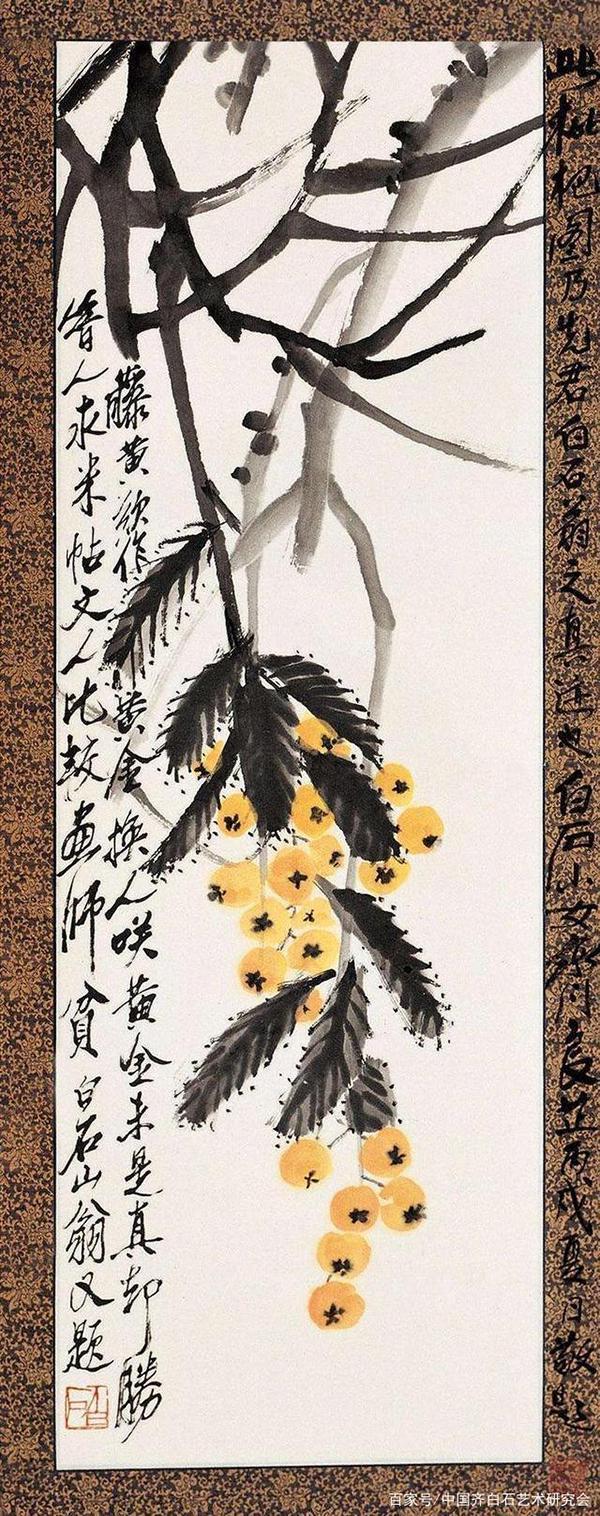 此枇杷图乃先君白石翁之真迹也白石小女齊良芷丙戌夏月敬題
藤黄欲作黄金換人咲黄金未是真却勝
晉人求米帖文人比較畫師貧白石山翁又題
百家号/中国齐白石艺术研究会